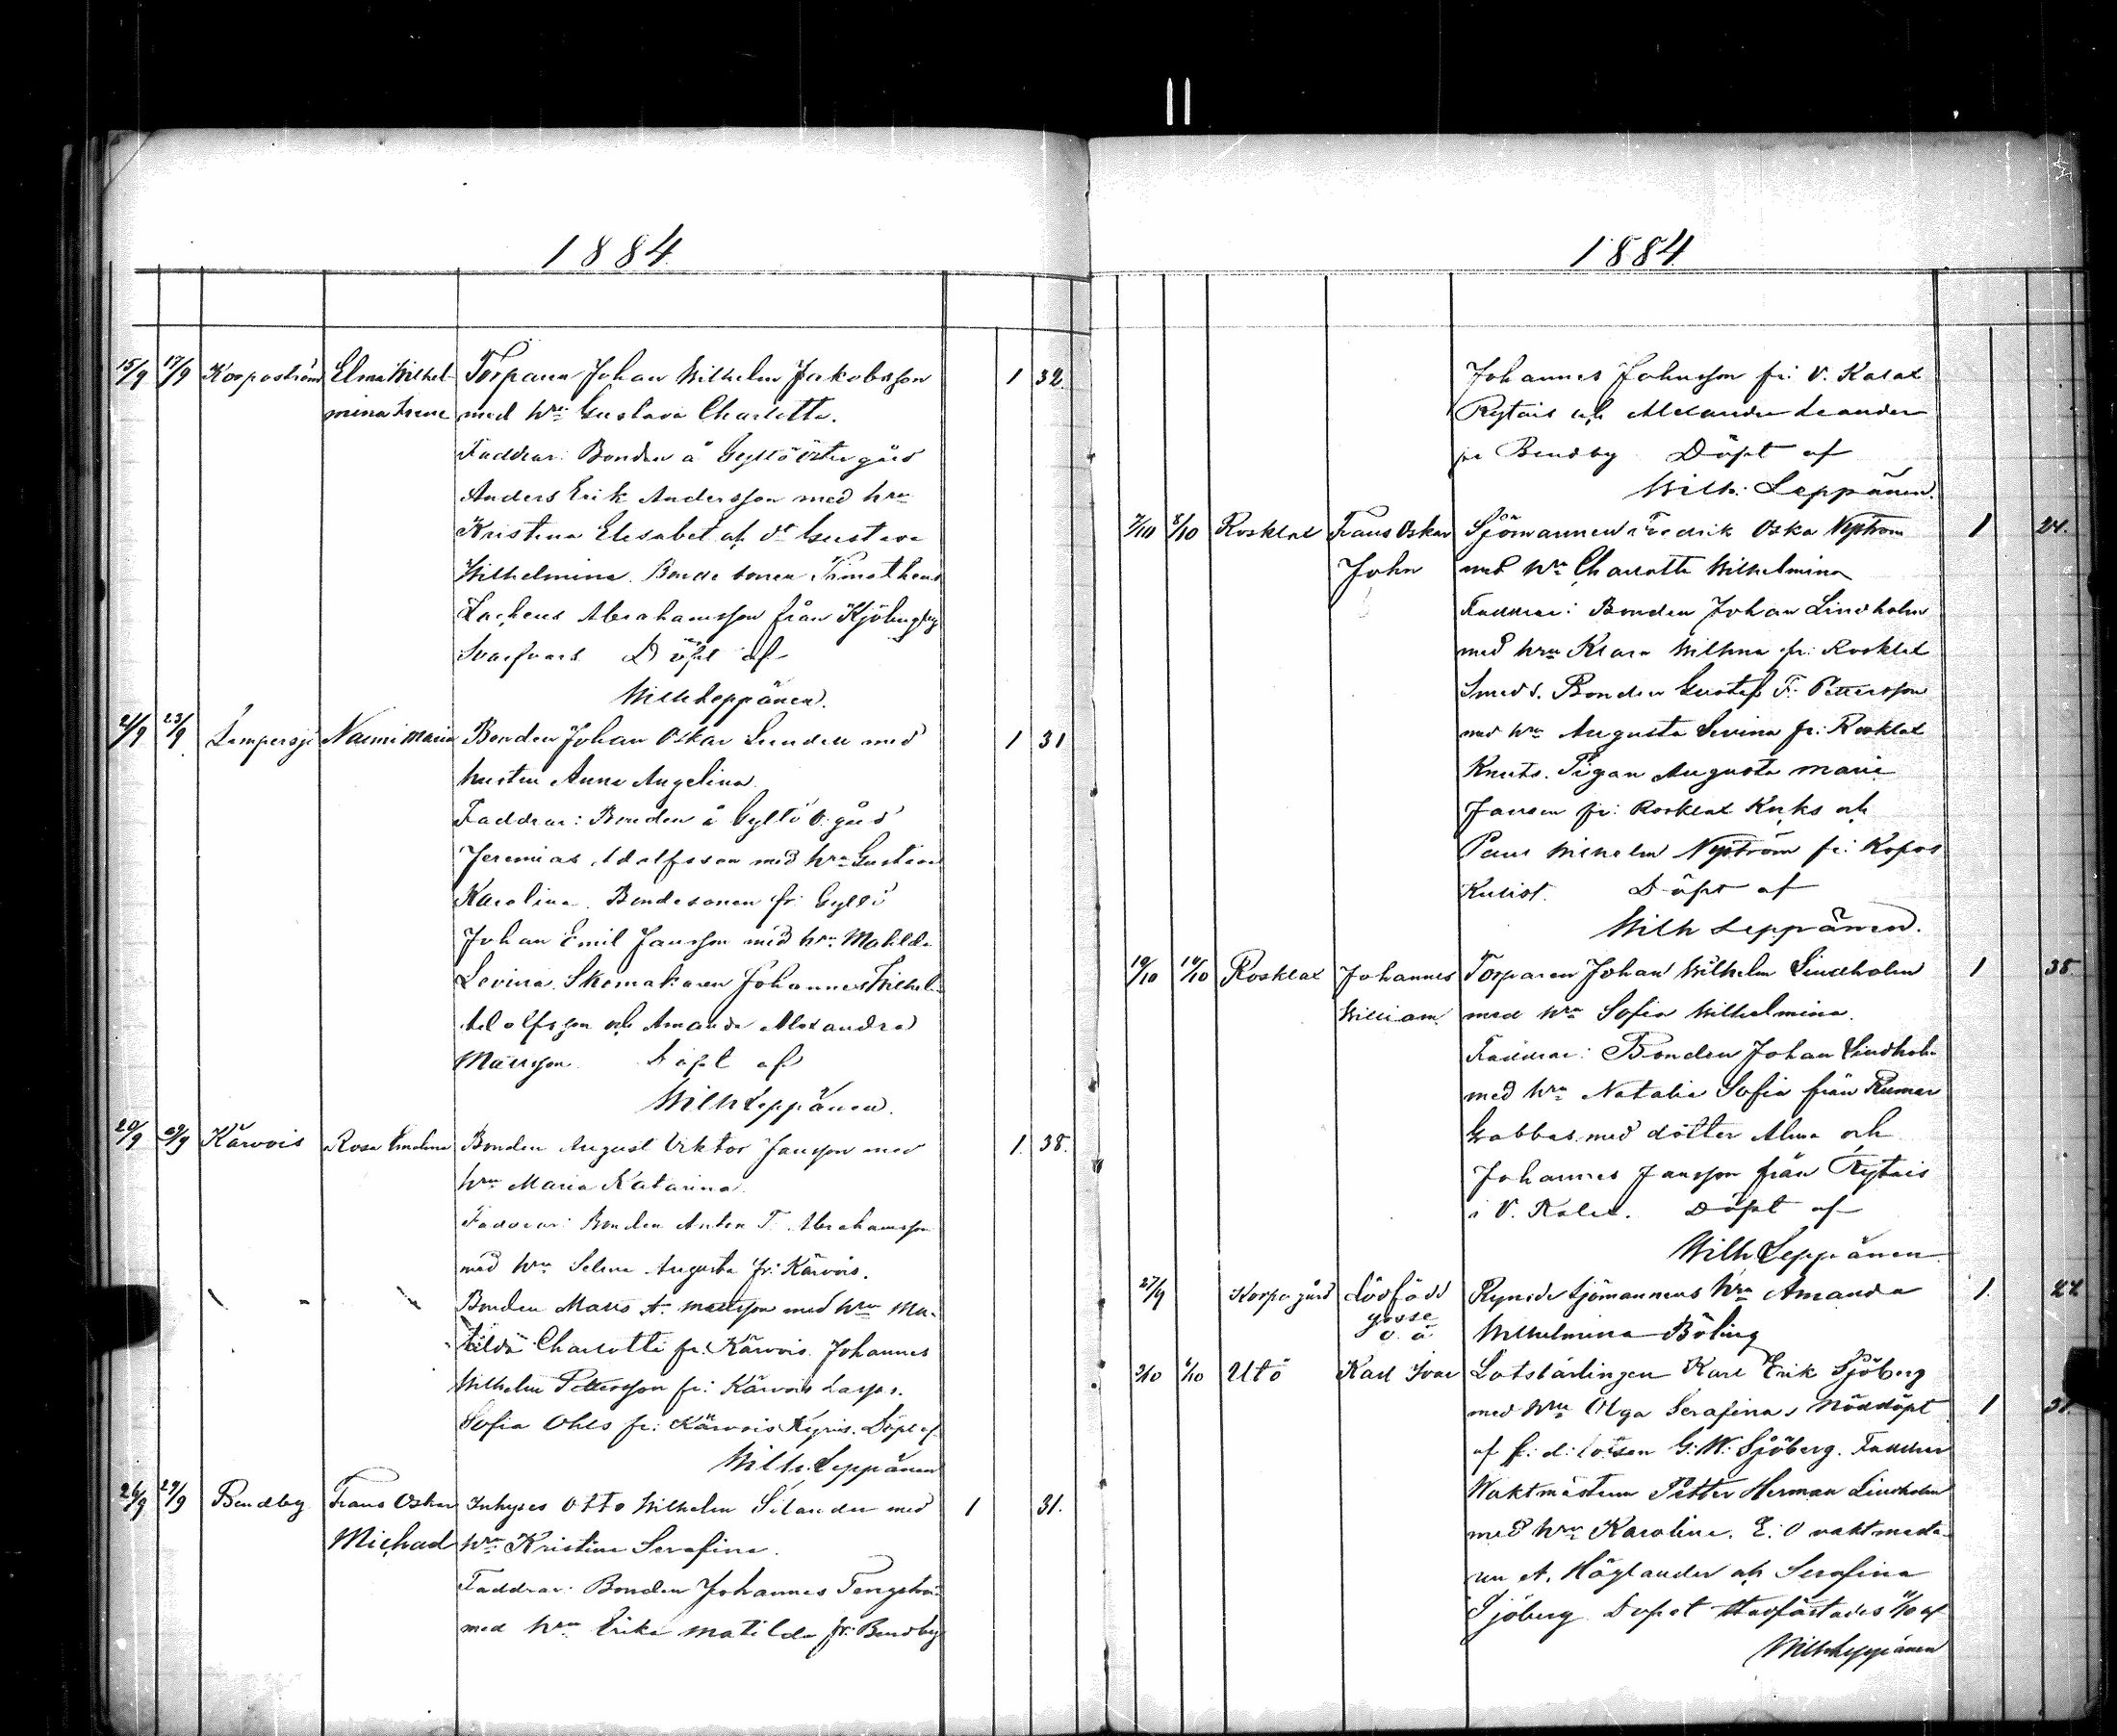 1884
15/9 17/9 Korpoström Elma Wilhel- Torparen Johan Wilhelm Jakobsson 1 32.
mina Irene med hru Gustava Charlotta.
Faddrar: Bonden å Gyltö östergård
Anders Erik Andersson med hru
Kristina Elisabet och dr Gustava
Wilhelmina. Bondesonen Timotheus
Zacheus Abrahamsson från Kjöbingby
Svarfvars Döpt af
Wilh Leppänen.
21/9 23/9 Lempersjö Naemi Maria Bonden Johan Oskar Lunden med 1 31
hustru Anna Angelina.
Faddrar: Bonden å Gyltö ö. gård
Jeremias Adolfsson med hru Gustava
Karolina. Bondesonen fr: Gyltö
Johan Emil Jansson med hru Matilda
Levina. Skomakaren Johannes Wilhelm
Adolfsson och Amanda Alexandra
Mattsson Döpt af
Wilh Leppänen.
20/9 29/9 Kärvois Rosa Emelina Bonden August Viktor Jansson med 1. 38.
hru Maria Katarina.
Faddrar: Bonden Anton F. Abrahamsson
med hru Selma Augusta fr: Kärvois.
Bonden Matts A. Mattsson med hru Ma-
tilda Charlotta fr: Kärvois. Johannes
Wilhelm Pettersson fr: Kärvois Lasses.
Sofia Ohls fr: Kärvois Döpt af
Wilh. Leppänen
26/9 29/9 Bendby Frans Oskar Inhyses Otto Wilhelm Silander med 1 31.
Michael hru Kristina Serafina.
Faddrar: Bonden Johannes Tengström
med hru Erika Matilda fr: Bendby
1884
Johannes Johnsson fr: V. Kalax
Rytais och Alexander Leander
fr: Bendby Döpt af
Wilh. Leppänen.
7/10 8/10 Rosklax Frans Oskar Sjömannen Fredrik Oskar Nyström 1 24.
John med hru Charlotta Wilhelmina
Faddrar: Bonden Johan Lindholm
med hru Klara Wilhma fr: Rosklax
Smeds. Bonden Gustaf F. Pettersson
med hru Augusta Sevina fr: Rosklax
Knuts. Pigan Augusta Maria
Jansson fr: Rosklax Kuks och
Paul Wilhelm Nyström fr: Korpos
Döpt af
Wilh Leppänen.
10/10 10/10 Rosklax Johannes Torparen Johan Wilhelm Lindholm 1 38
William. med hru Sofia Wilhelmina.
Faddrar: Bonden Johan Lindholm
med hru Natalia Sofia från Rumar
Gabbas med dotter Alma och
Johannes Jansson från Rytais
i V. Kalax. Döpt af
Wilh. Leppänen
27/9 Korpo gård dödfödd Rymde sjömannens hru Amanda 1. 27
gosse
o. ä. Wilhelmina Böling
Utö Karl Ivar Lotslärlingen Karl Erik Sjöberg
med hru Olga Serafina, nöddöpt 1 31.
af f: d: lotsen G: W: Sjöberg. Faddrar
Waktmästaren Petter Herman Lindholm
med hru Karolina. E. O vaktmästa-
ren A. Höglander och Serafina
Sjöberg. Dopet stadfästades 11/10 af
Wilh Leppänen